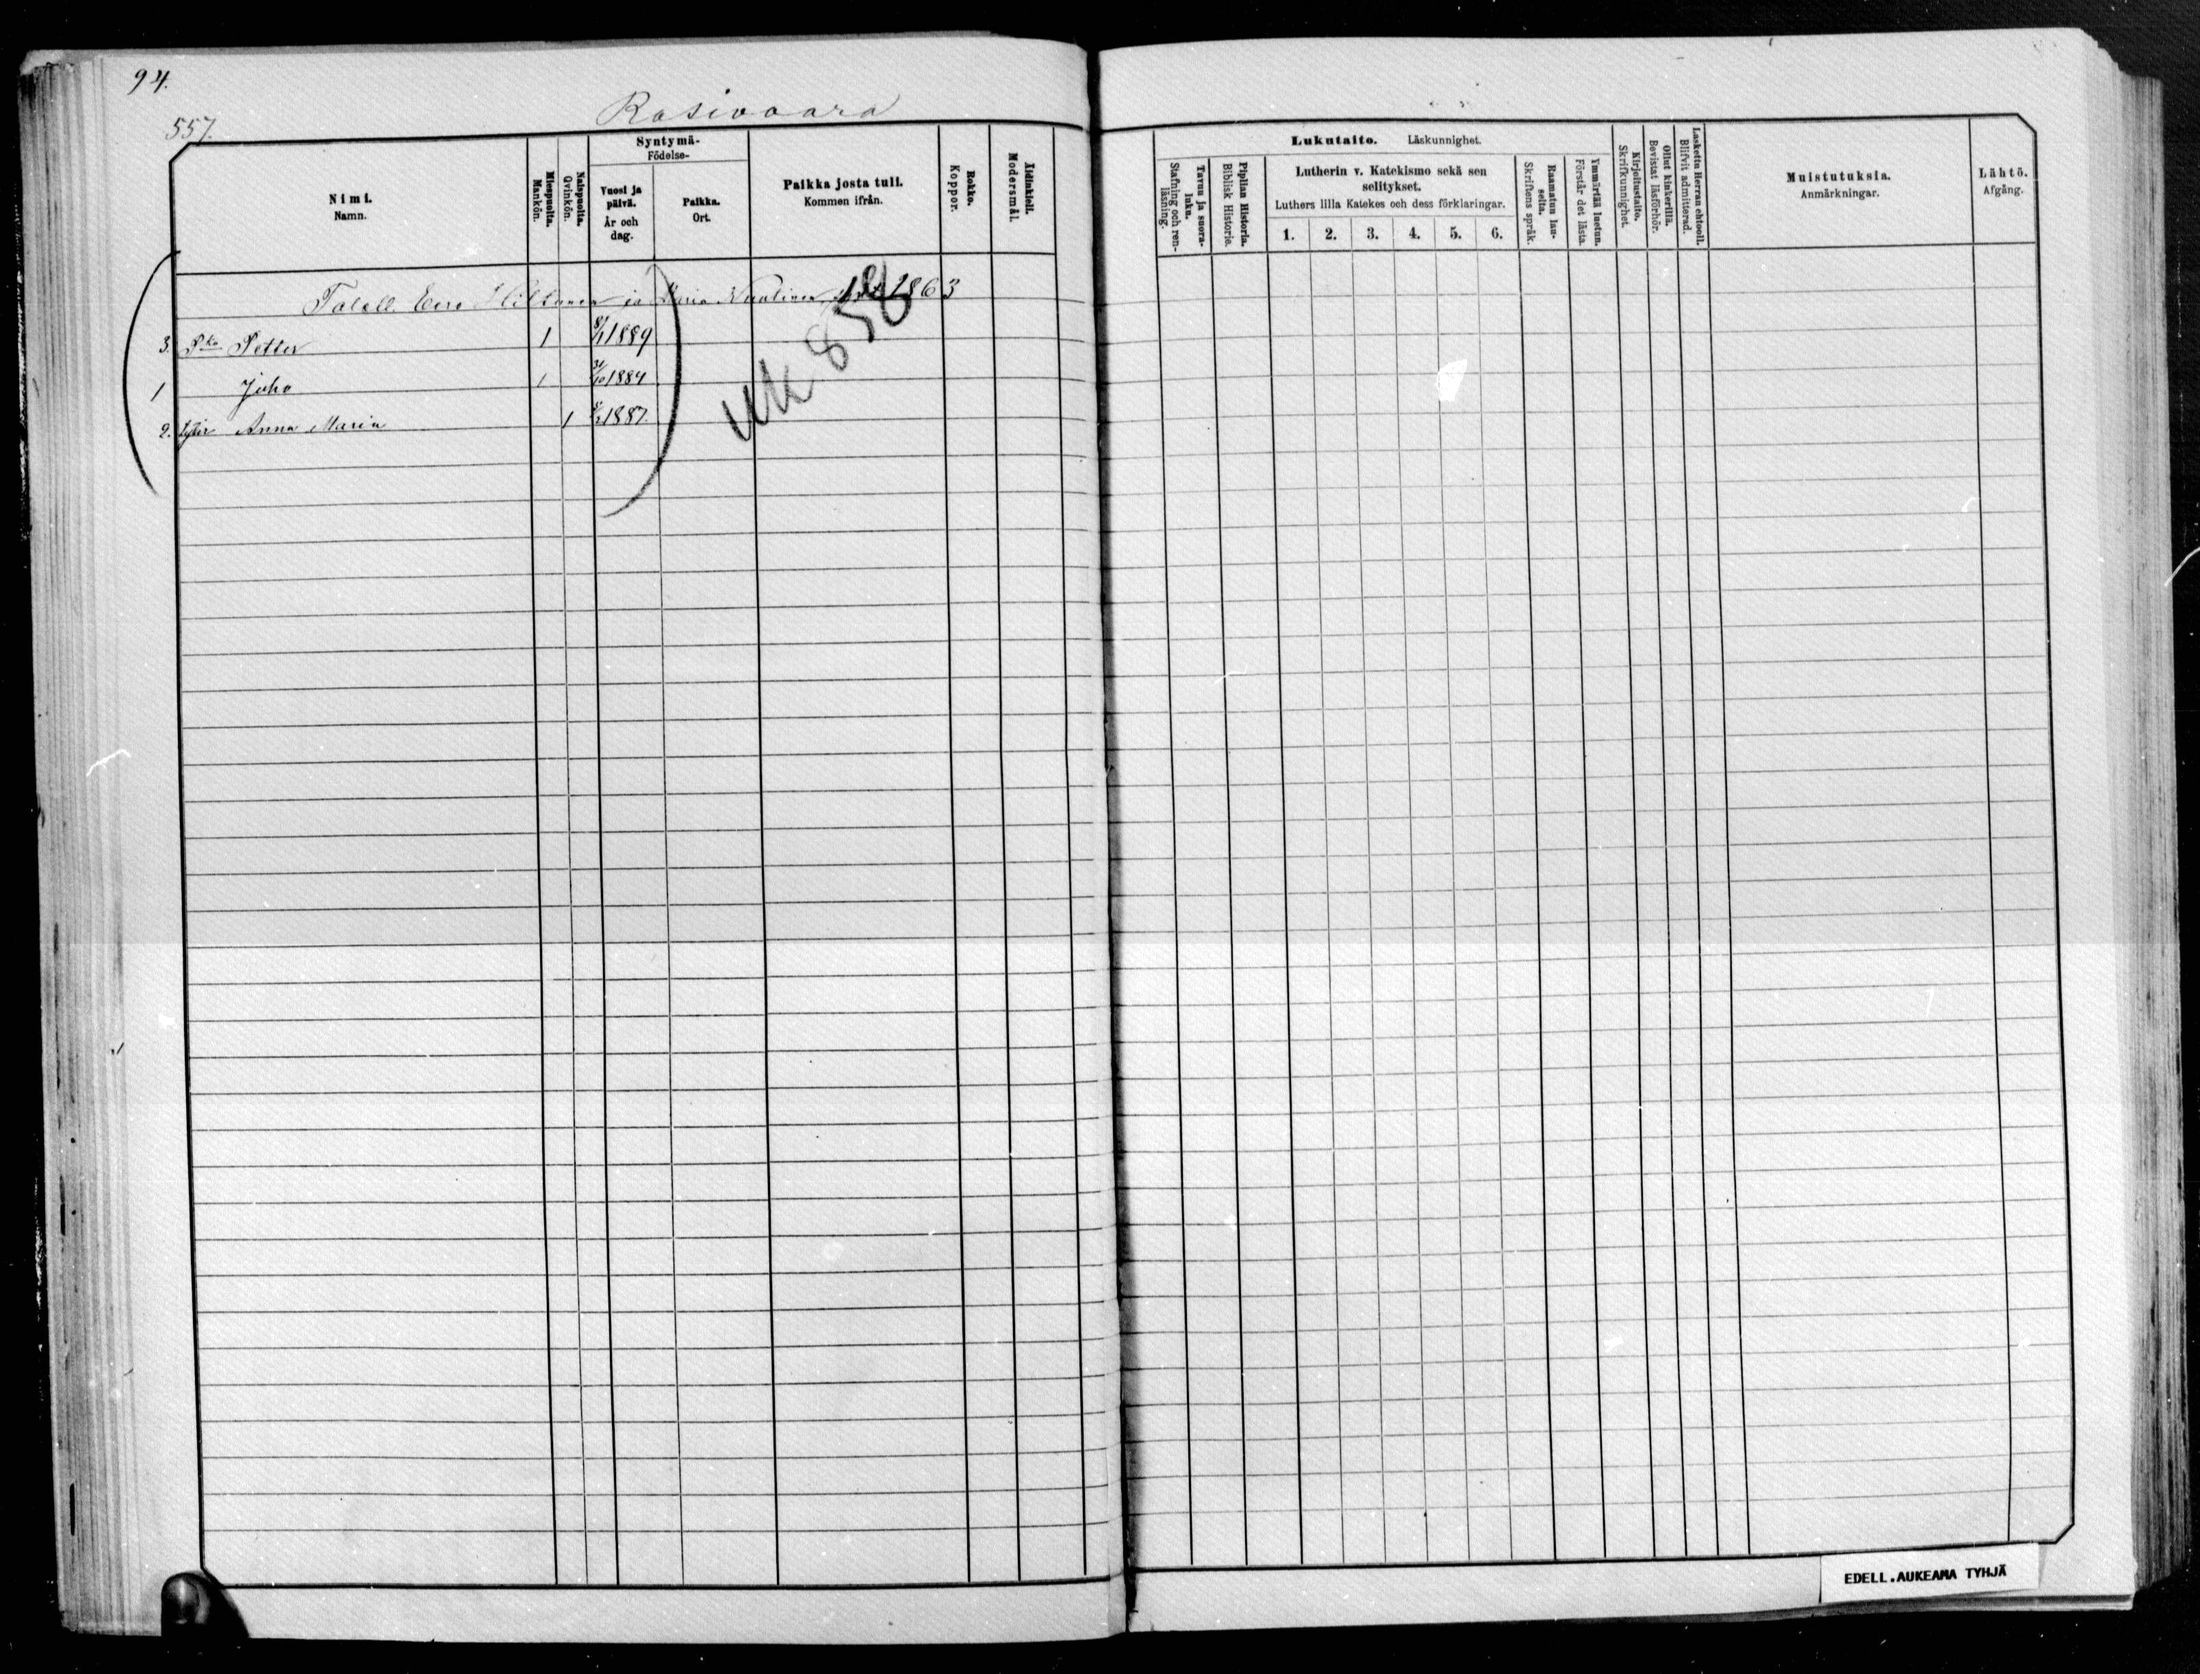 94.
557.
Rasivaara
Nimi.
Namn.
Miespuolta.
Mankön.
Naispuolta.
Qvinkön.
Syntymä-
Födelse-
Vuosi ja päivä.
År och dag.
Paikka.
Ort.
Paikka josta tuli.
Kommen ifrån.
Rokko.
Koppor.
Äidinkieli.
Modersmål.
Lukutaito. Läskunnighet.
Tavuu ja suora-luku.
Stafning och ren-läsning.
Piplian Historia.
Biblisk Historie.
Lutherin v. Katekismo sekä sen
selitykset.
Luthers lilla Katekes och dess förklaringar.
1. 2. 3. 4. 5. 6.
Raamatun lau-seita.
Skriftens språk.
Ymmärtää luetun.
Förstår det lästa.
Kirjoitustaito.
Skrifkunnighet.
Ollut kinkerillä.
Bevistat läsförhör.
Laskettu Herran ehtooll.
Blifvit admitterad.
Muistutuksia.
Anmärkningar.
Lähtö.
Afgång.
Taloll. Eero Hiltunen ja Maria Nuutinen 1863
3. Pka Petter 1 8/1 1889
1 Juho 1 31/10 1884
2. Tytär Anna Maria 1 1887.
UK 858
EDELL.AUKEAMA TYHJÄ